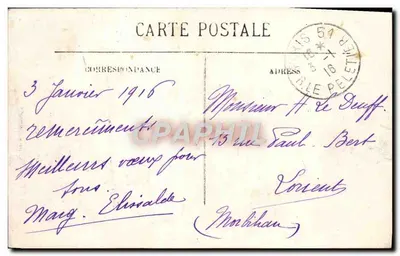 CARTE POSTALE
CORRESPONDANCE
ADRESSE
3 Janvier 1916
remerciments
Meilleurs vœux pour
tous.
Marg. Elissalde
Monsieur H. Le Deuff.
13 rue Paul Bert
Lorient
(Morbihan)
PARIS 51
R. LE PELETIER